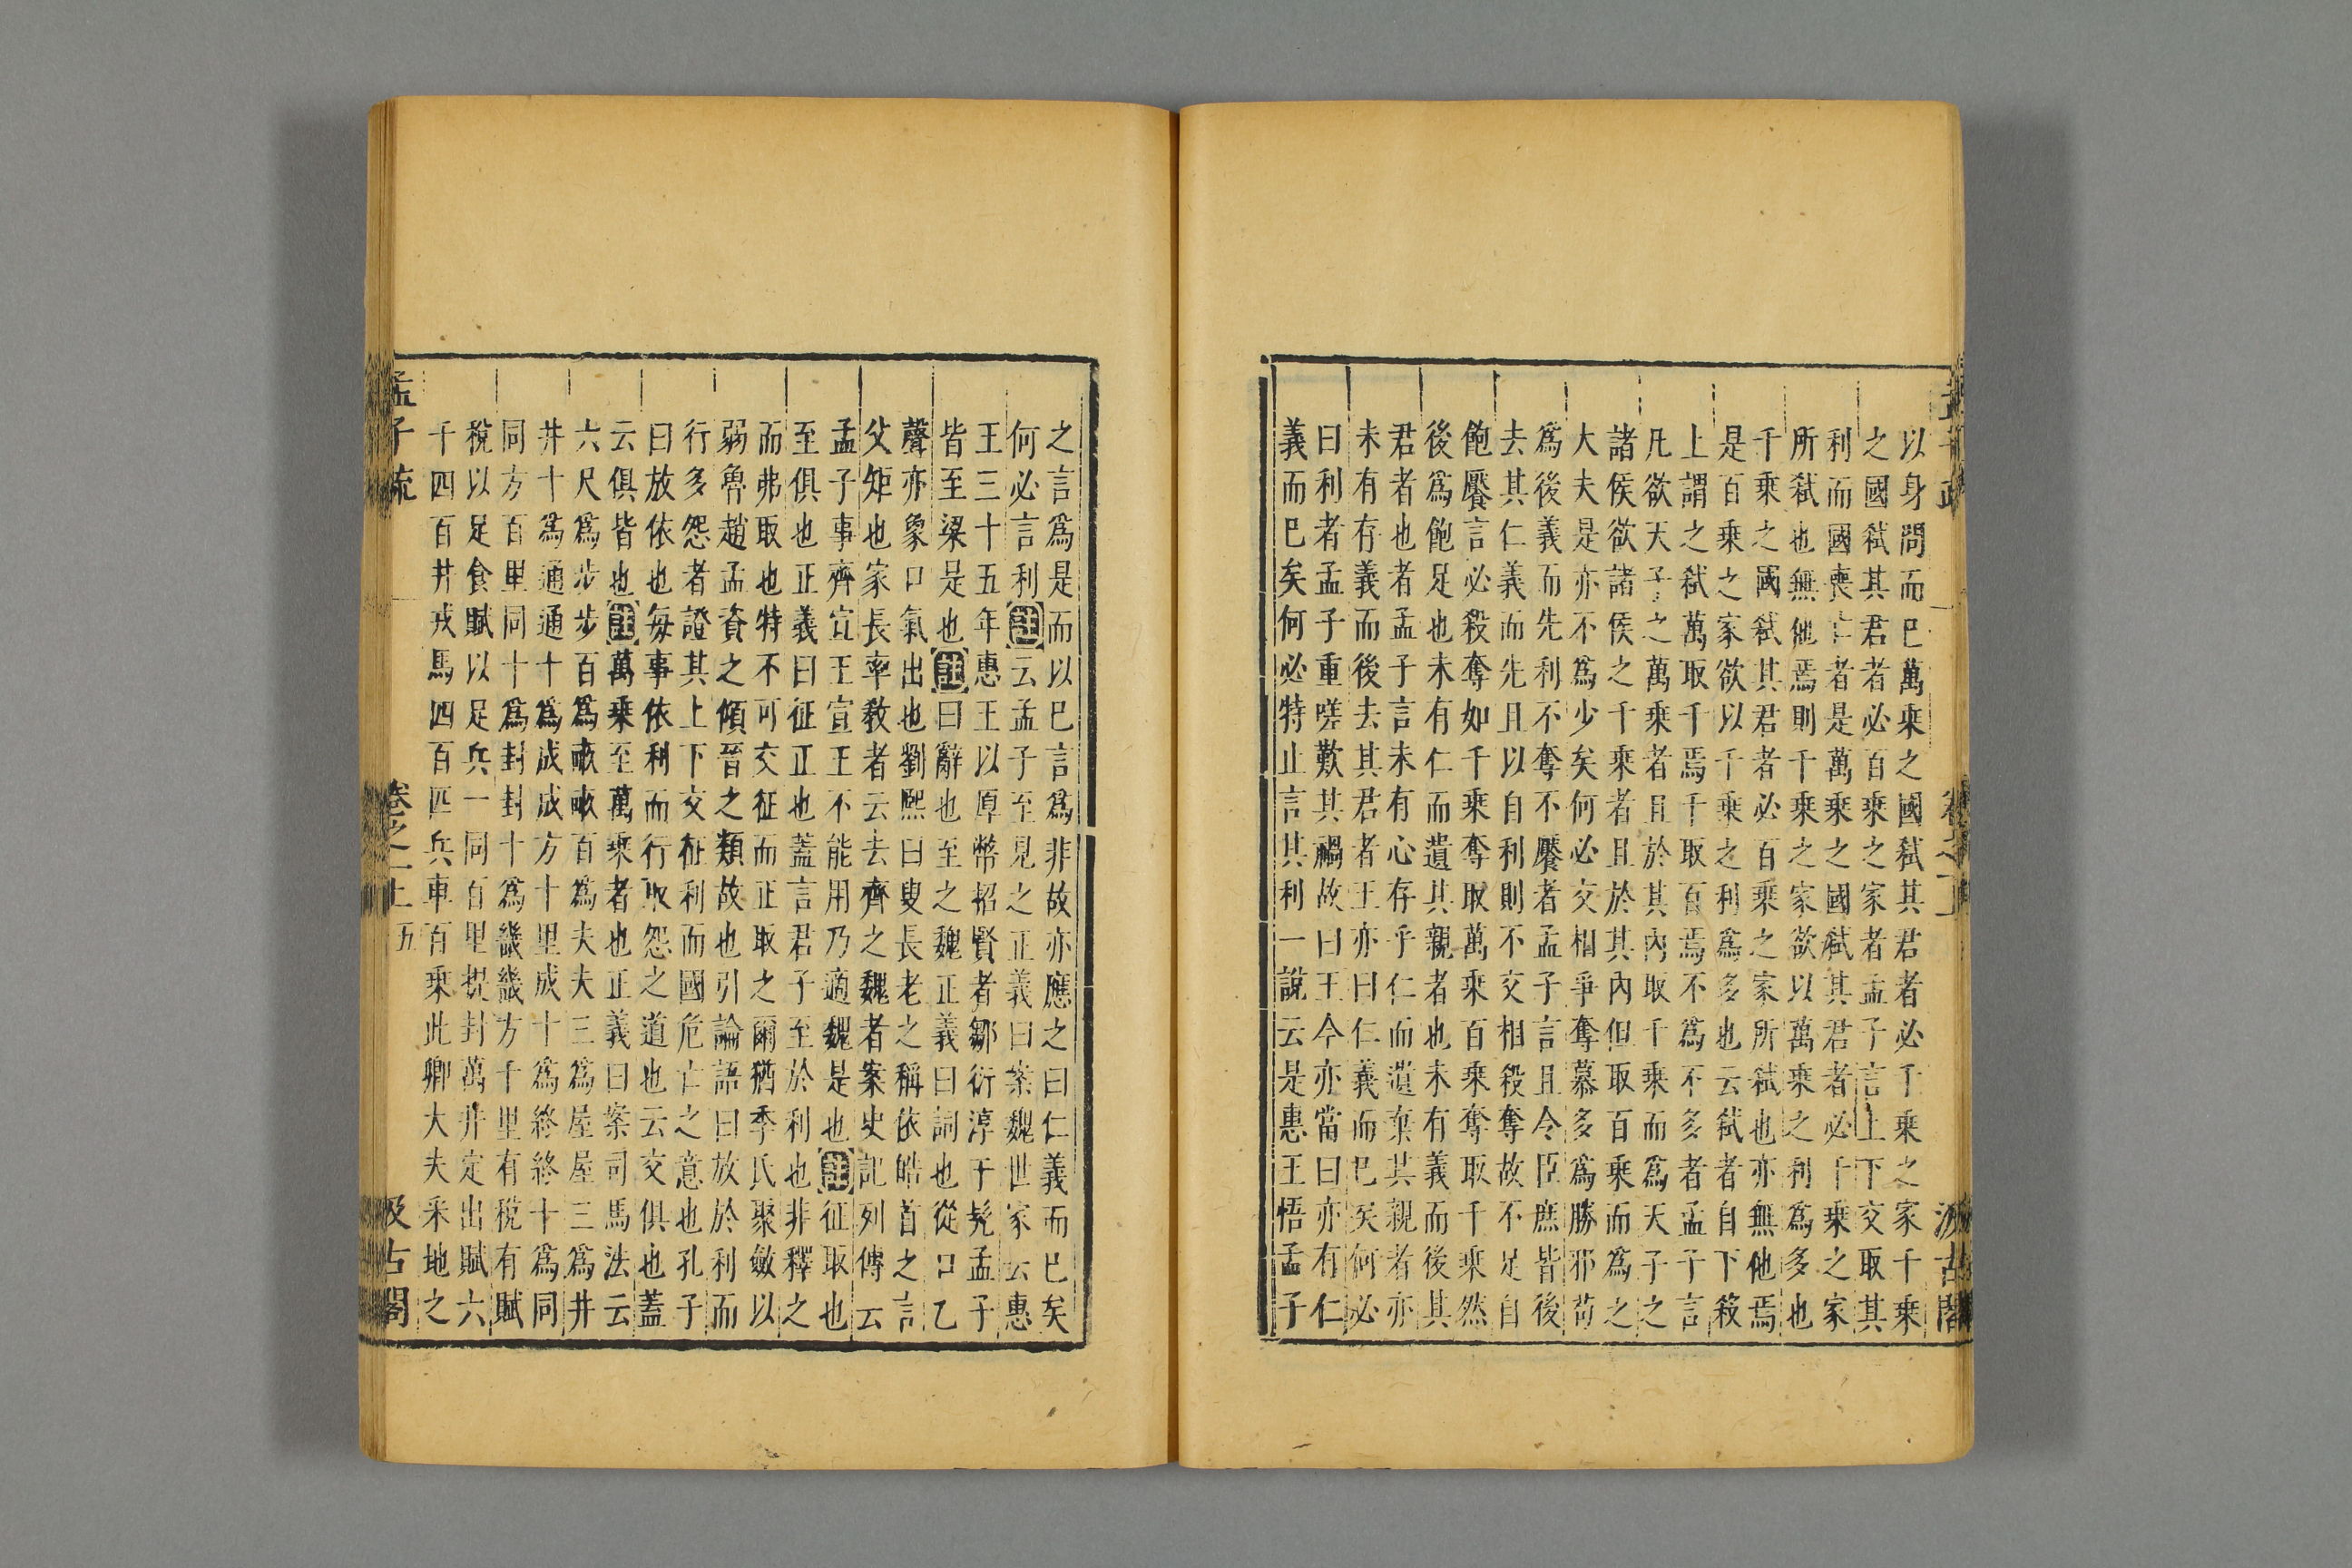 以身問而巳萬乘之國弑其君者必千乘之家千乘
之國弑其君者必百乘之家者孟子言上下交取其
利而國喪亡者是萬乘之國弑其君者必千乘之家
所弑也無他焉則千乘之家欲以萬乘之利爲多也
千乘之國弑其君者必百乘之家所弑也亦無他焉
是百乘之家欲以千乘之利爲多也云弑者自下殺
上謂之弑萬取千焉千取百焉不爲不多者孟子言
凡欲天子之萬乘者且於其內取千乘而爲天子之
諸侯欲諸侯之千乘者且於其內但取百乘而爲之
大夫是亦不爲少矣何必交相爭奪慕多爲勝邪苟
爲後義而先利不奪不饜者孟子言且令臣庶皆後
去其仁義而先且以自利則不交相殺奪故不足自
飽饜言必殺奪如千乘奪取萬乘百乘奪取千乘然
後爲飽足也未有仁而遺其親者也未有義而後其
君者也者孟子言未有心存乎仁而遺棄其親者亦
未有存義而後去其君者王亦曰仁義而巳矣何必
曰利者孟子重嗟歎其禍故曰王今亦當曰亦有仁
義而巳矣何必特止言其利一說云是惠王悟孟子
之言爲是而以巳言爲非故亦應之曰仁義而巳矣
何必言利註云孟子至見之正義曰案魏世家云惠
王三十五年惠王以厚幣招賢者鄒衍淳于髡孟子
皆至梁是也註曰辭也至之魏正義曰詞也從口乙
聲亦象口氣出也劉熙曰叟長老之稱依皓首之言
父矩也家長率教者云去齊之魏者案史記列傳云
孟子事齊宣王宣王不能用乃適魏是也註征取也
至俱也正義曰征正也蓋言君子至於利也非釋之
而弗取也特不可交征而正取之爾猶季氏聚斂以
弱魯趙孟資之傾晉之類故也引論語曰放於利而
行多怨者證其上下交征利而國危亡之意也孔子
曰放依也每事依利而行取怨之道也云交俱也蓋
云俱皆也註萬乘至萬乘者也正義曰案司馬法云
六尺爲步步百爲畞畞百爲夫夫三爲屋屋三爲井
井十爲通通十爲成成方十里成十爲終終十爲同
同方百里同十爲封封十爲畿畿方千里有稅有賦
稅以足食賦以足兵一同百里提封萬井定出賦六
千四百井戎馬四百匹兵車百乘此卿大夫采地之
孟子疏 卷之一上 五 汲古閣